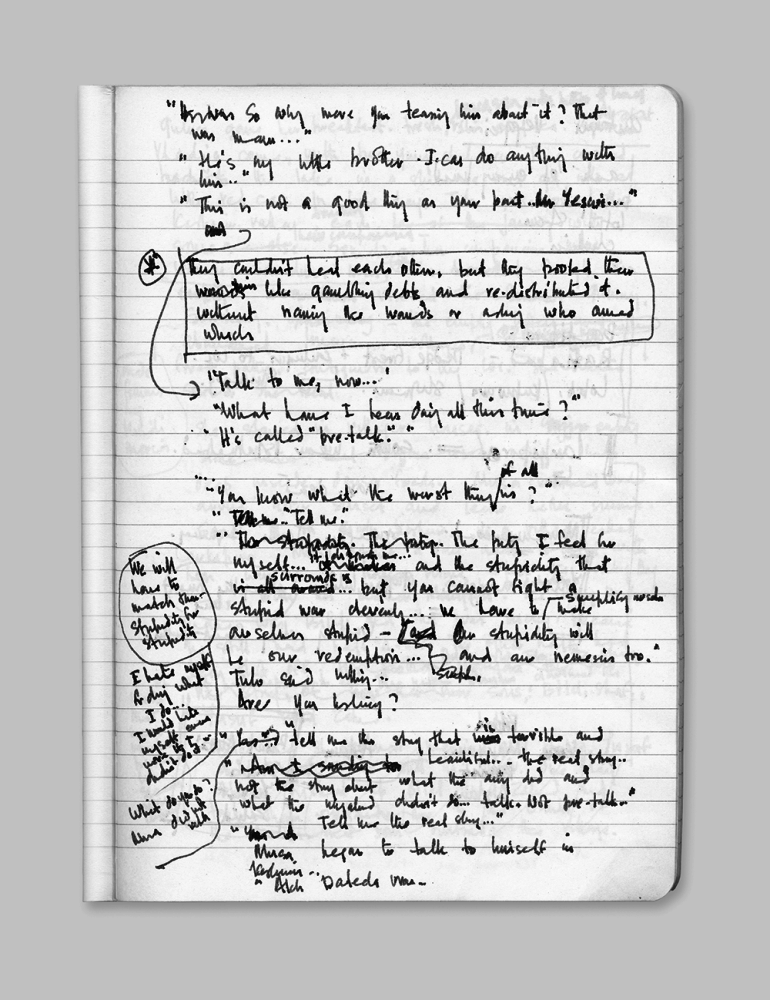 So why were you teasing him about it? That
was mean..."
"He's my little brother. I can do anything with
him.."
"This is not a good thing on your part...
They couldn't heal each other, but they pooled their
like gambling debts and re-distributed it.
without naming the wounds or asking who owned
which
"Talk to me, now..."
"What have I been doing all this time?"
"It's called "pre-talk"."
"You know what the worst thing of all is?"
"Tell me."
The stupidity. The pity. The pity I feel for
myself... and the stupidity that
surrounds us
... but you cannot fight a
stupid war cleverly... we have to simplify
make
ourselves stupid – our stupidity will
be our redemption... and our nemesis too."
said nothing...
Are you listening?
"tell me the story that is terrible and
beautiful... the real story..
not the story about what the army did and
what the didn't do... talk. Not pre-talk.."
Tell me the real story..."
Musa began to talk to himself in
We will
have to
match their
stupidity for
stupidity
I hate myself
for doing what
I do.
I would like
myself even
less if I
didn't do it
What do you do?